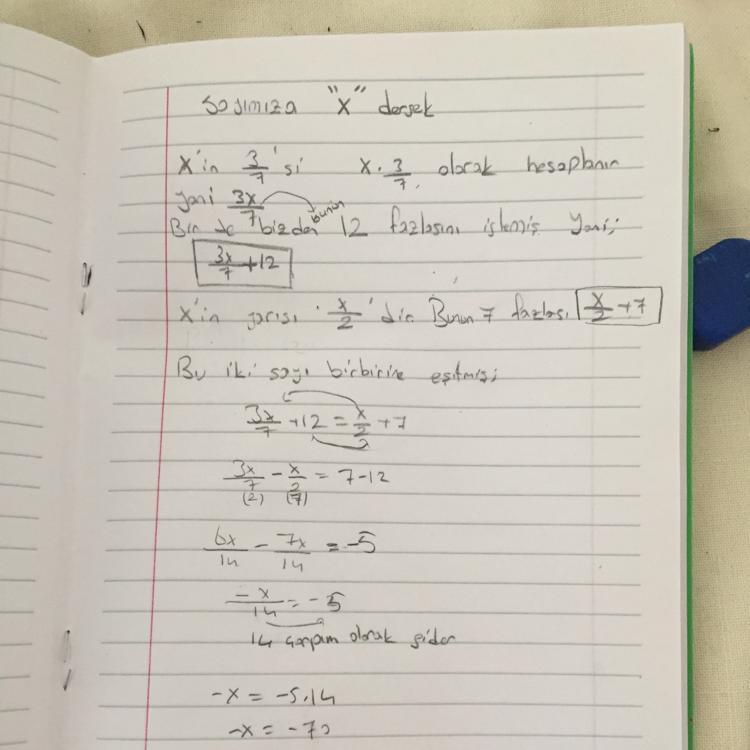 Sayımıza "X" dersek
X'in 3/7'si x·3/7 olarak hesaplanır
yani 3x/7
Bir de bizden bunun 12 fazlasını istemiş yani;
3x/7 + 12
X'in yarısı 'x/2' 'dir Bunun 7 fazlası x/2 + 7
Bu iki sayı birbirine eşitmiş;
3x/7 + 12 = x/2 + 7
3x/7 - x/2 = 7 - 12
(2) (7)
6x/14 - 7x/14 = -5
-x/14 = -5
14 çarpım olarak gider
-x = -5.14
-x = -70